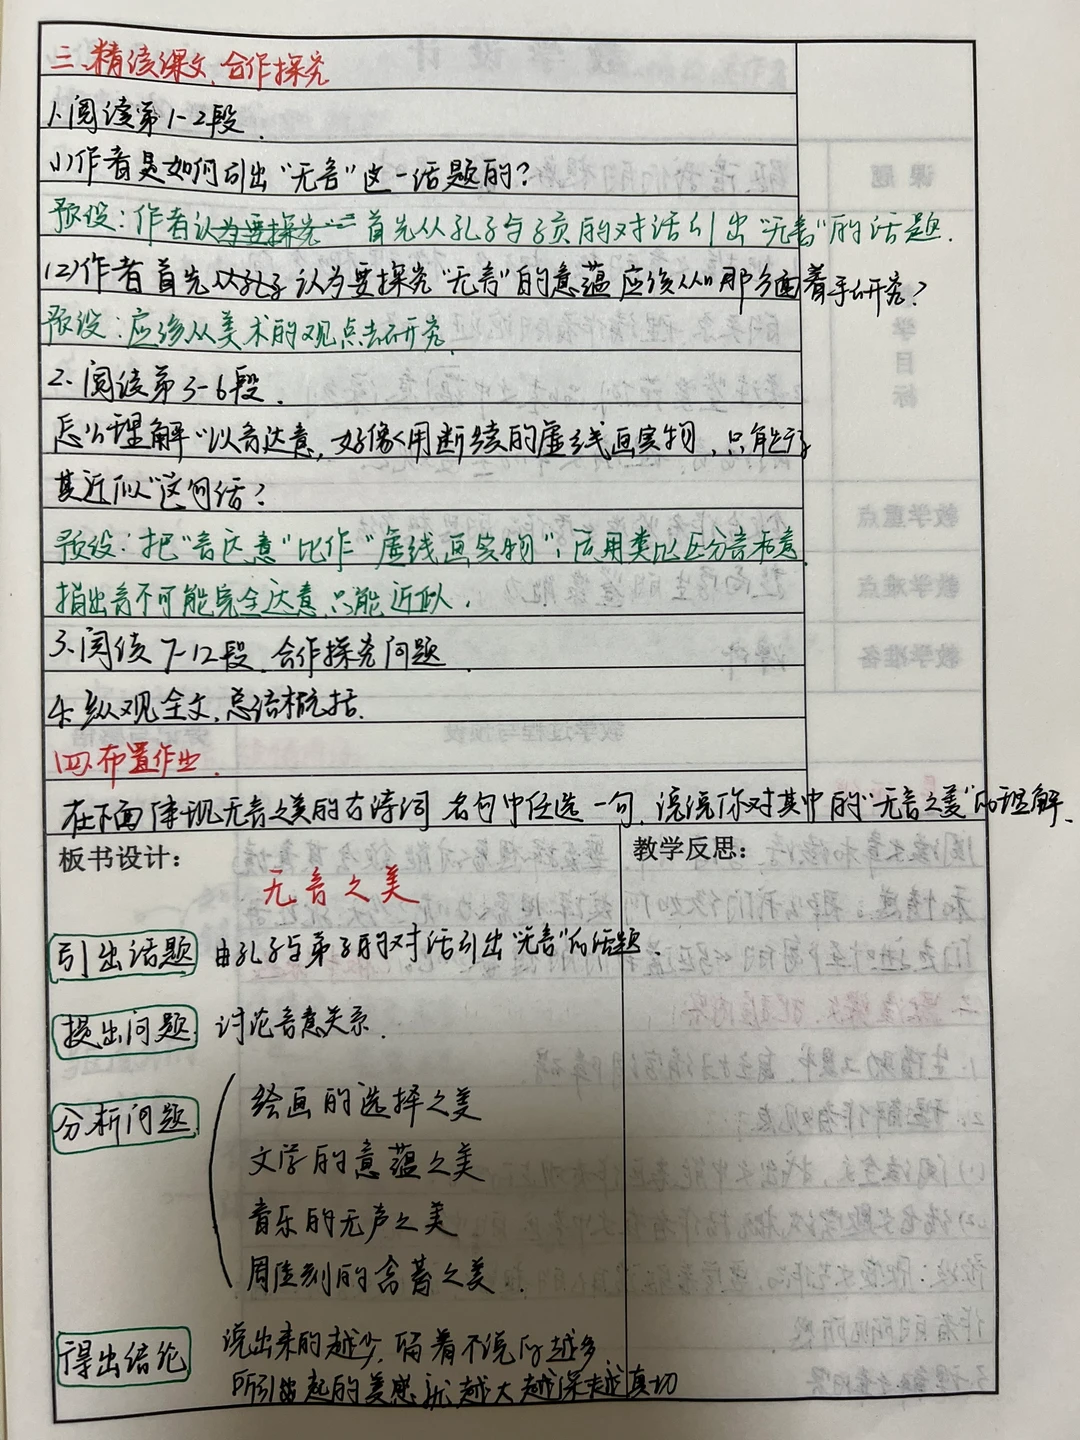 三、精读课文,合作探究
1.阅读第1-2段.
(1)作者是如何引出"无言"这一话题的?
预设:作者认为要探究 首先从孔子与子贡的对话引出"无言"的话题.
(2)作者首先从孔子认为要探究"无言"的意蕴应该从哪方面着手研究?
预设:应该从美术的观点去研究
2.阅读第3-6段.
怎么理解"以言达意,好像用断续的虚线画实物,只能得
其近似"这句话?
预设:把"言达意"比作"虚线画实物",运用类比区分言和意
指出言不可能完全达意,只能近似.
3.阅读7-12段,合作探究问题
4.纵观全文,总结概括.
四.布置作业.
在下面体现无言之美的古诗词名句中任选一句,说说你对其中的"无言之美"的理解.
板书设计:
教学反思:
无言之美
引出话题 由孔子与弟子的对话引出"无言"的话题.
提出问题 讨论言意关系.
分析问题
绘画的选择之美
文学的意蕴之美
音乐的无声之美
雕刻的含蓄之美.
得出结论 说出来的越少,留着不说的越多
所引起的美感就越大越深越真切